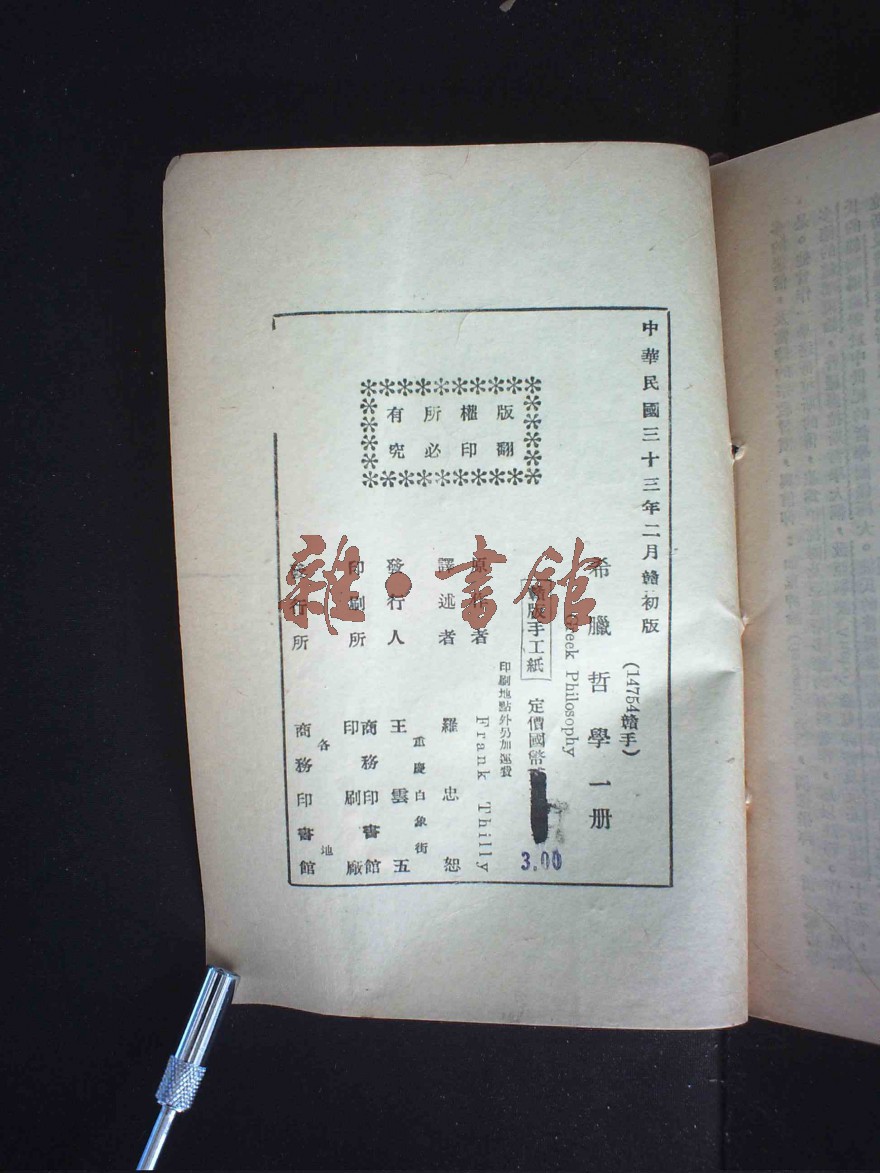 中華民國三十三年二月贛初版
(14754贛手)
希臘哲學一册
Greek Philosophy
贛版手工紙
定價國幣
3.00
印刷地點外另加運費
原作者 Frank Thilly
譯述者 羅忠恕
重慶白象街
發行人 王雲五
印刷所 商務印書館
印刷廠
各地
發行所 商務印書館
版權所有
翻印必究
雜·書館